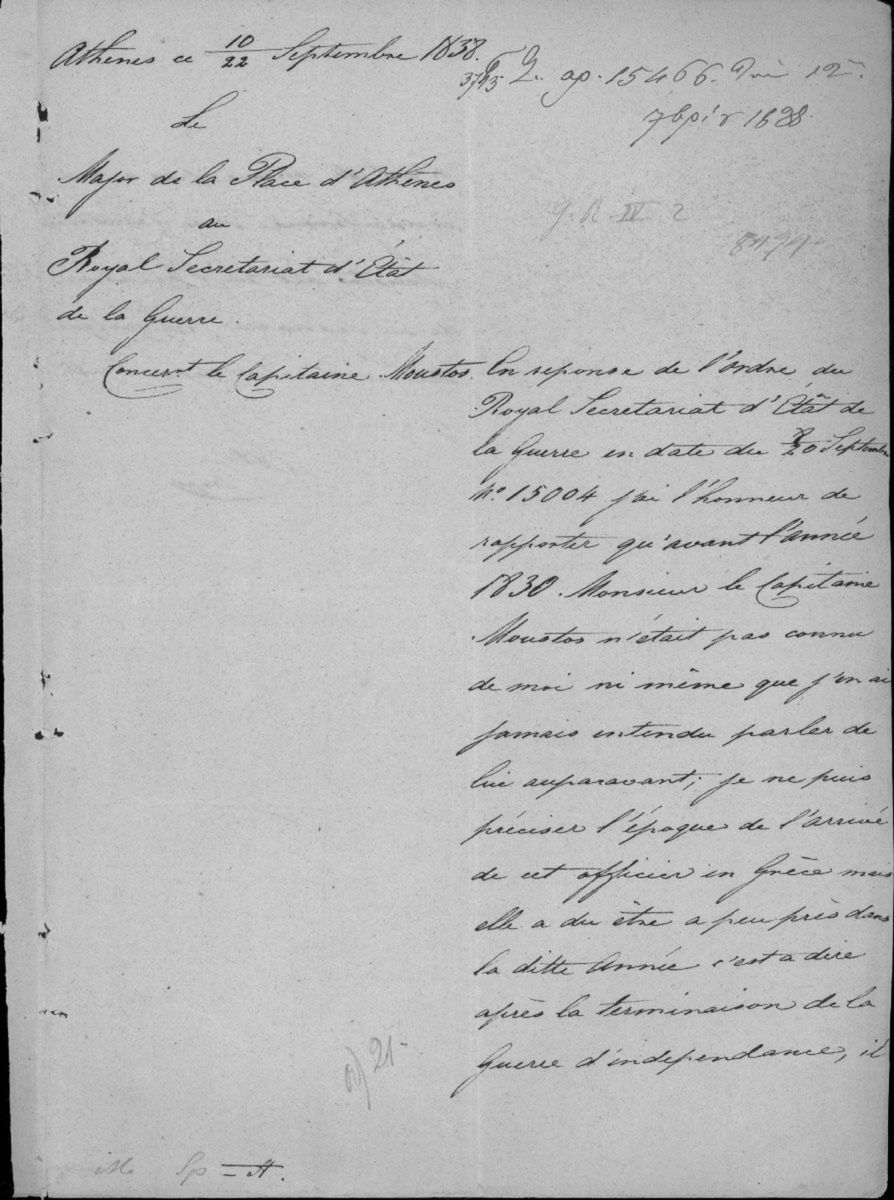 Athenes ce 10/22 Septembre 1838.
3745 ap. 15466. 12
7bρίου 1838.
Le
Major de la Place d'Athenes
au
Royal Secretariat d'État
de la Guerre.
g. R. IV 2
Concernt le Capitaine Moustos.
En reponse de l'ordre du
Royal Secretariat d'État de
la Guerre en date du 8/20 Septembre
No. 15004 j'ai l'honneur de
rapporter qu'avant l'année
1830. Monsieur le Capitaine
Moustos n'était pas connu
de moi ni même que j'en ai
jamais entendu parler de
lui auparavant; je ne puis
préciser l'époque de l'arrivé
de cet officier en Grèce mais
elle a du être a peu près dans
la ditte Année c'est a dire
après la terminaison de la
Guerre d'independance, il
21-